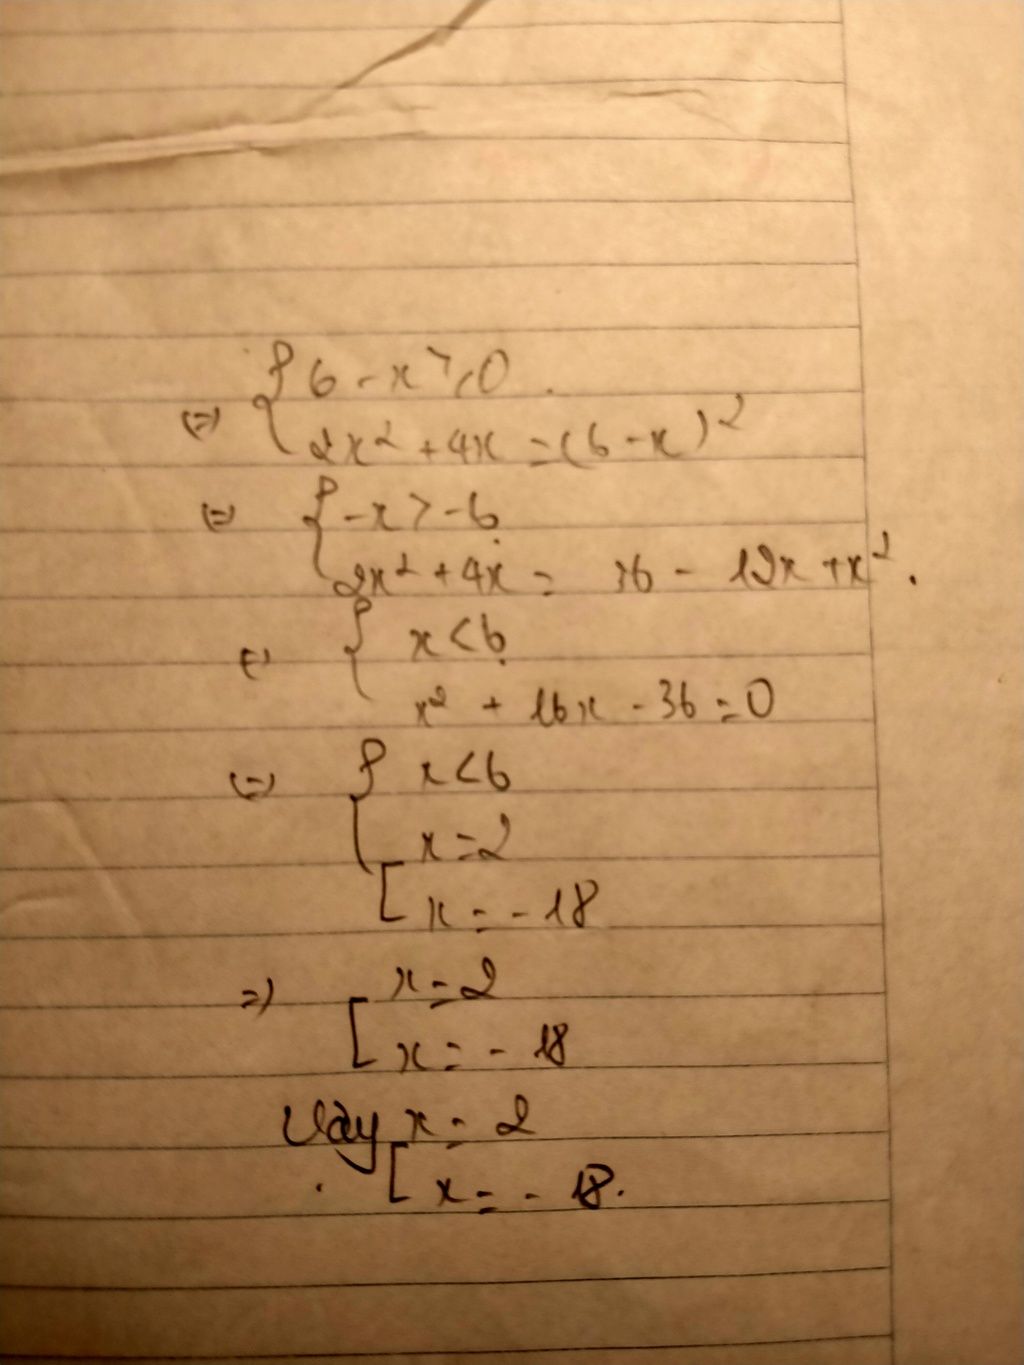 { 6 - x ≥ 0 .
(=) 2x² + 4x = (6 - x)²
(=) { -x > -6
2x² + 4x = 36 - 12x + x² .
(=) { x < 6
x² + 16x - 36 = 0
(=) { x < 6
x = 2
[ x = - 18
=) x = 2
[ x = - 18
Vậy x = 2
[ x = - 18.